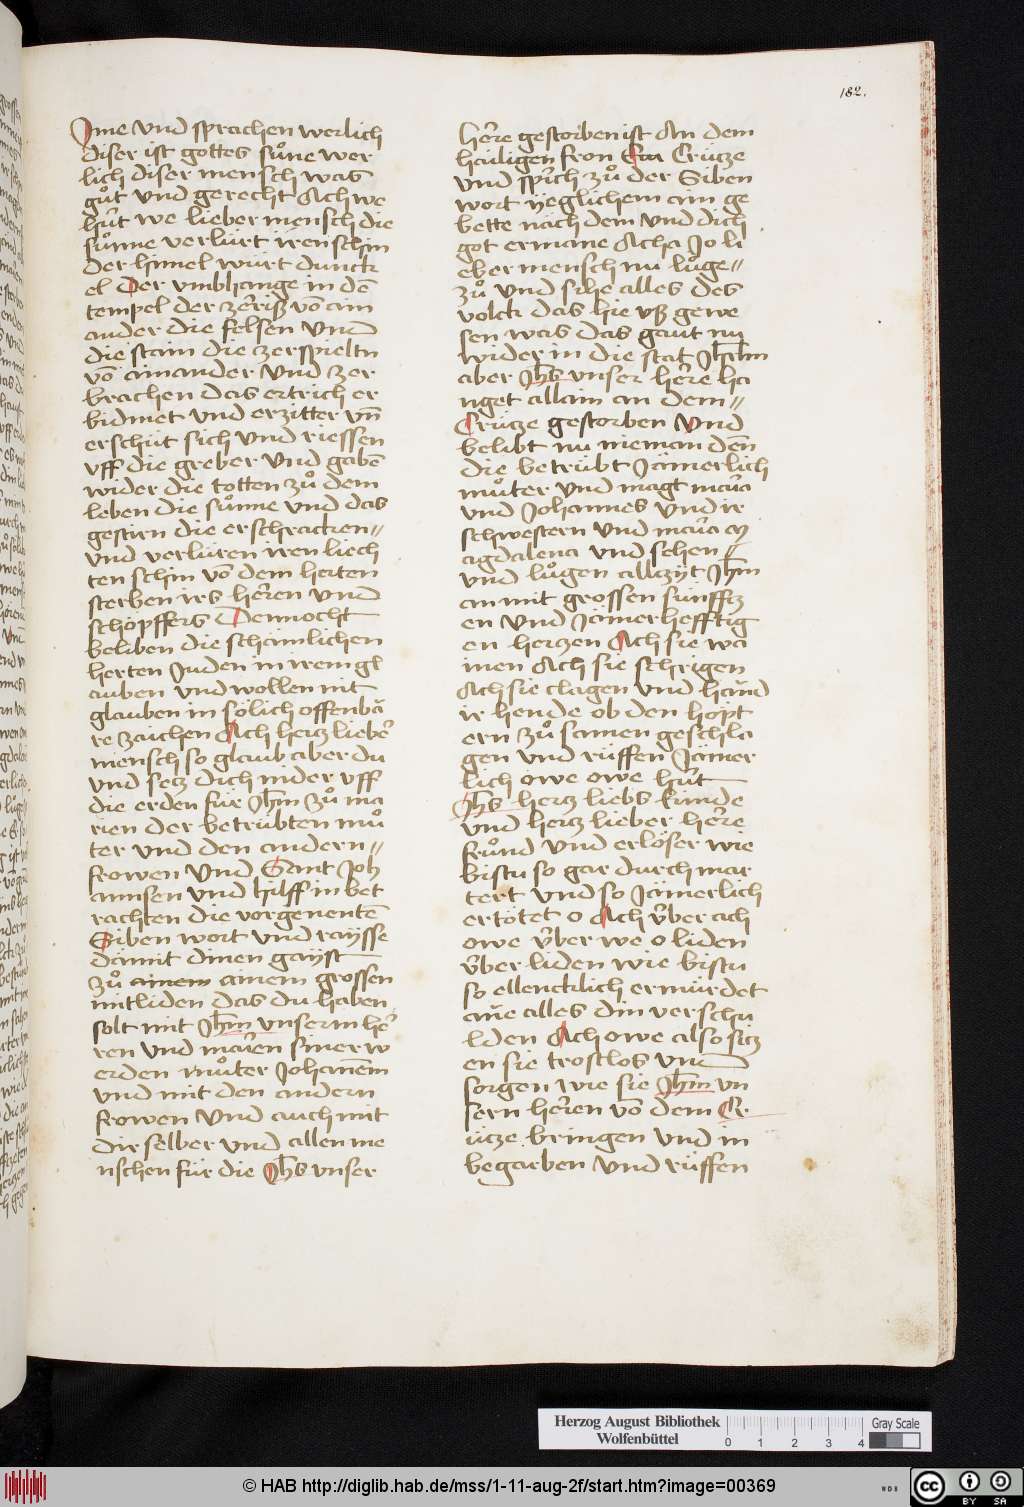 182.
Ime vnd sprachen werlich
diser ist gottes sůne wer
lich diser mensch was
gůt vnd gerecht Ach we
hüt we lieber mensch die
sůnne verlürt iren schin
der himel wurt dunck
el Der vmbhange in dē
tempel der zerriß vō ain
ander die felsen Vnd
die stain die zerspieltn
vō ainander Vnd zer
brachen das ertrich er
bidmet vnd erzitter vn̄
erschüt sich vnd riessen
vff die greber Vnd gabē
wider die totten zů dem
leben die sůnne vnd das
gestirn die erschracken〃
vnd verlüren iren liech
ten schin vō dem herten
sterben irs herren vnd
schöpffers Dennocht
beliben die schamlichen
herten Juden in irem gl
auben vnd wollen nit
glauben in sölich offenbā
re zaichen Ach hertz lieber
mensch so glaub aber du
vnd setz dich nider vff
die erden für Jhm̄ zů ma
rien der betrübten mů
ter vnd den andern〃
frowen Vnd Sant Joh
annsen vnd hilff in bet
rachten die vorgenentē
Siben wort vnd raysse
damit dinen gayst
zů ainem ainem grossen
mitliden das du haben
solt mit Jhm̄ vnserm her
ren vnd marien siner w
erden můter Johanēm
vnd mit den andern
frowen Vnd auch mit
dir selber vnd allen me
nschen für die Jhs̄ vnser
herre gestorben ist An dem
hailigen fron Crütze
vnd sprich zů der Siben
wort yeglichem ain ge
bette nach dem vnd dich
got ermane Acha Jo li
eber mensch nu lůge〃
zů vnd sihe alles des
volck das hie vß gewe
sen was das gaut nu
wider in die stat Jhrlm
aber Jhs̄ vnser herre ha
nget allain an dem〃
Crütze gestorben Vnd
belibt nu nieman dēn
die betrübt Jämerlich
můter vnd magt maria
vnd Johannes vnd ir
schwestern vnd maria m
agdalena vnd sehen〃
vnd lůgen allzyt Jhm̄
an mit grossen sünfftz
en vnd Jämerhefftig
en hertzen Ach sie wa
inen Ach sie schrigen
Ach sie clagen vnd hand
ir hende ob den höpt
ern zů samen geschla
gen vnd rüffen Jämer
lich owe owe hüt
Jhs̄ hertz liebs kinde
vnd hertz lieber herre
frůnd vnd erlöser wie
bistu so gar durch mar
tert vnd so Jämerlich
ertötet o Ach v̈ber ach
owe v̈ber we o liden
v̈ber liden wie bistu
so ellencklich ermürdet
ane alles din verschu
lden Ach owe also sitz
en sie trostlos vnd
sorgen wie sie Jhm̄ vn
sern herren vō dem Cr
ütze bringen vnd in
begraben vnd rüffen
Herzog August Bibliothek
Wolfenbüttel
0 1 2 3 4
Gray Scale
© HAB http://diglib.hab.de/mss/1-11-aug-2f/start.htm?image=00369
WDB
cc BY SA